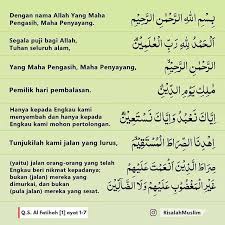 Dengan nama Allah Yang Maha
Pengasih, Maha Penyayang.
بِسْمِ اللّٰهِ الرَّحْمٰنِ الرَّحِيْمِ
Segala puji bagi Allah,
Tuhan seluruh alam,
اَلْحَمْدُ لِلّٰهِ رَبِّ الْعٰلَمِيْنَ
Yang Maha Pengasih, Maha Penyayang,
الرَّحْمٰنِ الرَّحِيْمِ
Pemilik hari pembalasan.
مٰلِكِ يَوْمِ الدِّيْنِ
Hanya kepada Engkau kami
menyembah dan hanya kepada
Engkau kami mohon pertolongan.
اِيَّاكَ نَعْبُدُ وَاِيَّاكَ نَسْتَعِيْنُ
Tunjukilah kami jalan yang lurus,
اِهْدِنَا الصِّرَاطَ الْمُسْتَقِيْمَ
(yaitu) jalan orang-orang yang telah
Engkau beri nikmat kepadanya;
bukan (jalan) mereka yang
dimurkai, dan bukan
pula (jalan) mereka yang sesat.
صِرَاطَ الَّذِيْنَ اَنْعَمْتَ عَلَيْهِمْ
غَيْرِ الْمَغْضُوْبِ عَلَيْهِمْ وَلَا الضَّاۤلِّيْنَ
Q.S. Al Fatihah [1] ayat 1-7
RisalahMuslim